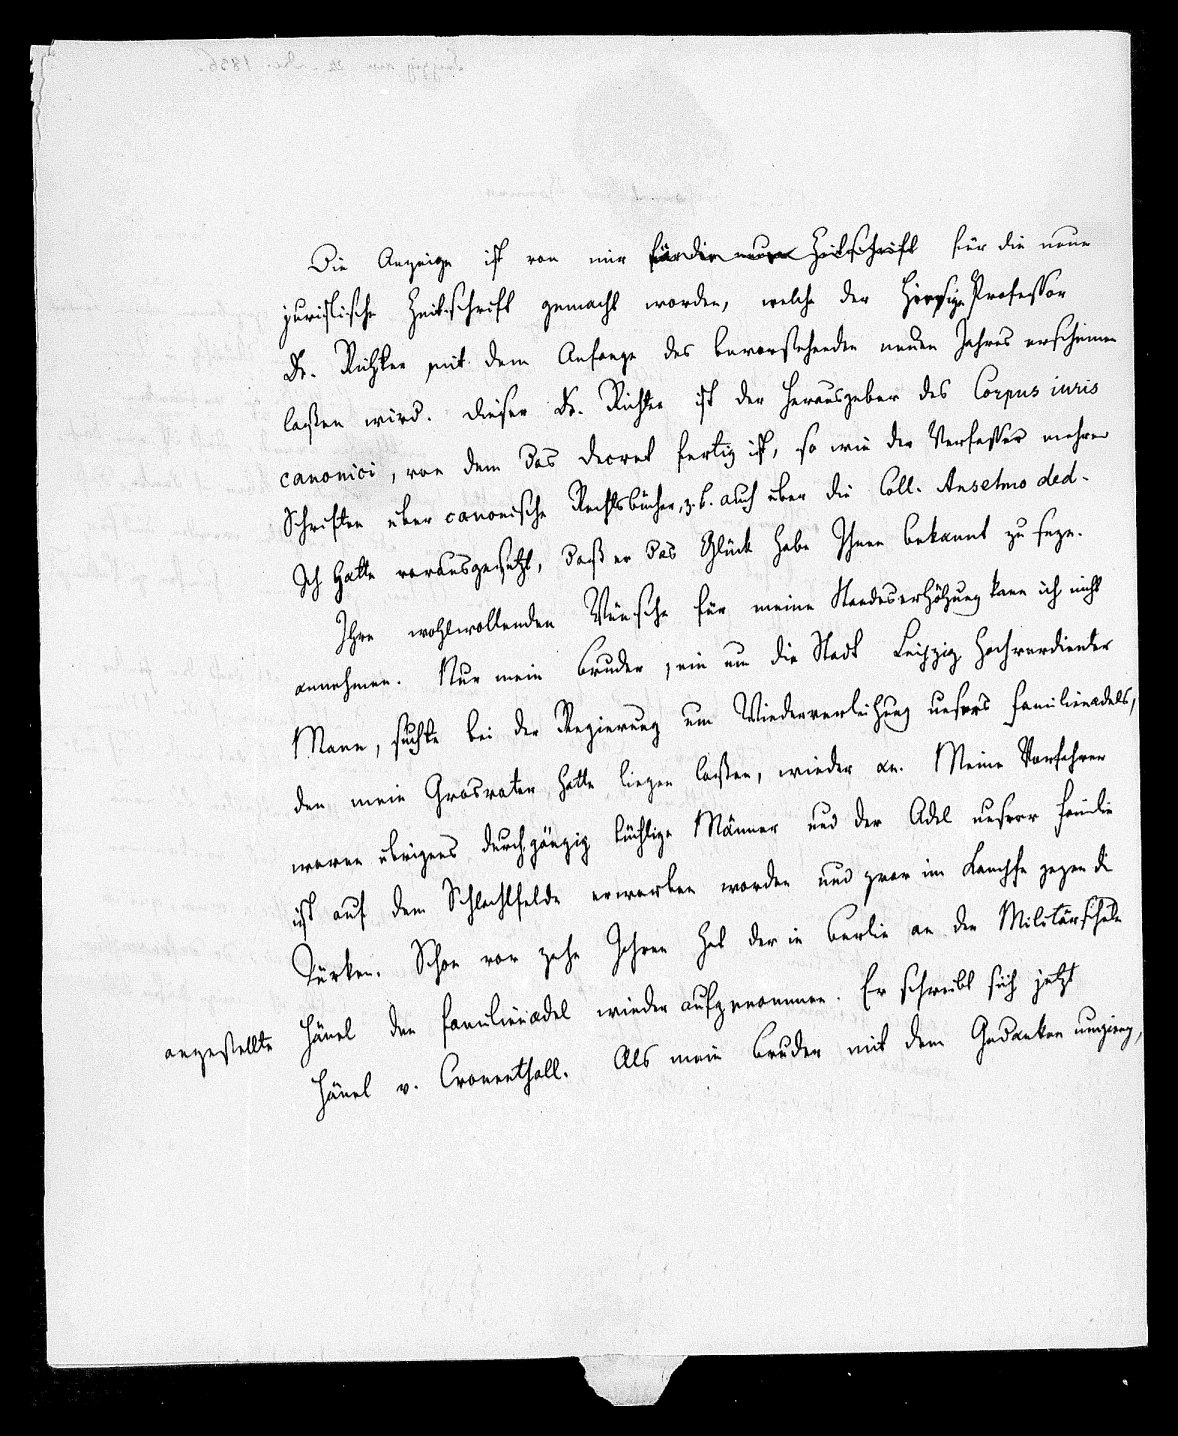 Die Anzeige ist von mir für die neue Zeitschrift für die neue
juristische Zeitschrift gemacht worden, welche der hiesige Professor
Dr. Richter mit dem Anfange des bevorstehenden neuen Jahres erscheinen
laßen wird. Dieser Dr. Richter ist der Herausgeber des Corpus iuris
canonici, von dem das Decret fertig ist, so wie der Verfasser mehrer
Schriften uber canonische Rechtsbücher, z. b. auch über die Coll. Anselmo ded.
Ich hatte vorausgesetzt, daß er das Glück habe Ihnen bekannt zu seyn.
Ihre wohlwollenden Wünsche für meine Standeserhöhung kann ich nicht
annehmen. Nur mein Bruder, ein um die Stadt Leipzig hochverdienter
Mann, suchte bei der Regierung um Wiederverleihung unsers Familienadels,
den mein Grosvater, hatte liegen laßen, wieder an. Meine Vorfahren
waren übrigens durchgängig tüchtige Männer und der Adel unserer Familie
ist auf dem Schlachtfelde erworben worden und zwar im Kampfe gegen di
Türken. Schon vor zehn Jahren hat der in Berlin an der Militärschule
angestellte Hänel den Familienadel wieder aufgenommen. Er schreibt sich jetzt
Hänel v. Cronenthall. Als mein Bruder mit dem Gedanken umgieng,